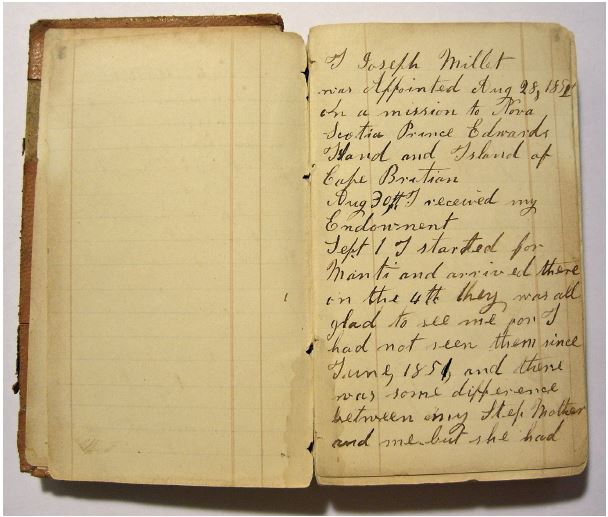 I Joseph Millet
was Appointed Aug 28, 1852
on a mission to Nova
Scotia Prince Edwards
Island and Island of
Cape Britian
Aug 30th I received my
Endownent
Sept 1 I started for
Manti and arrived there
on the 4th they was all
glad to see me for I
had not seen them since
June, 1851, and there
was some difference
between my Step Mother
and me but she had